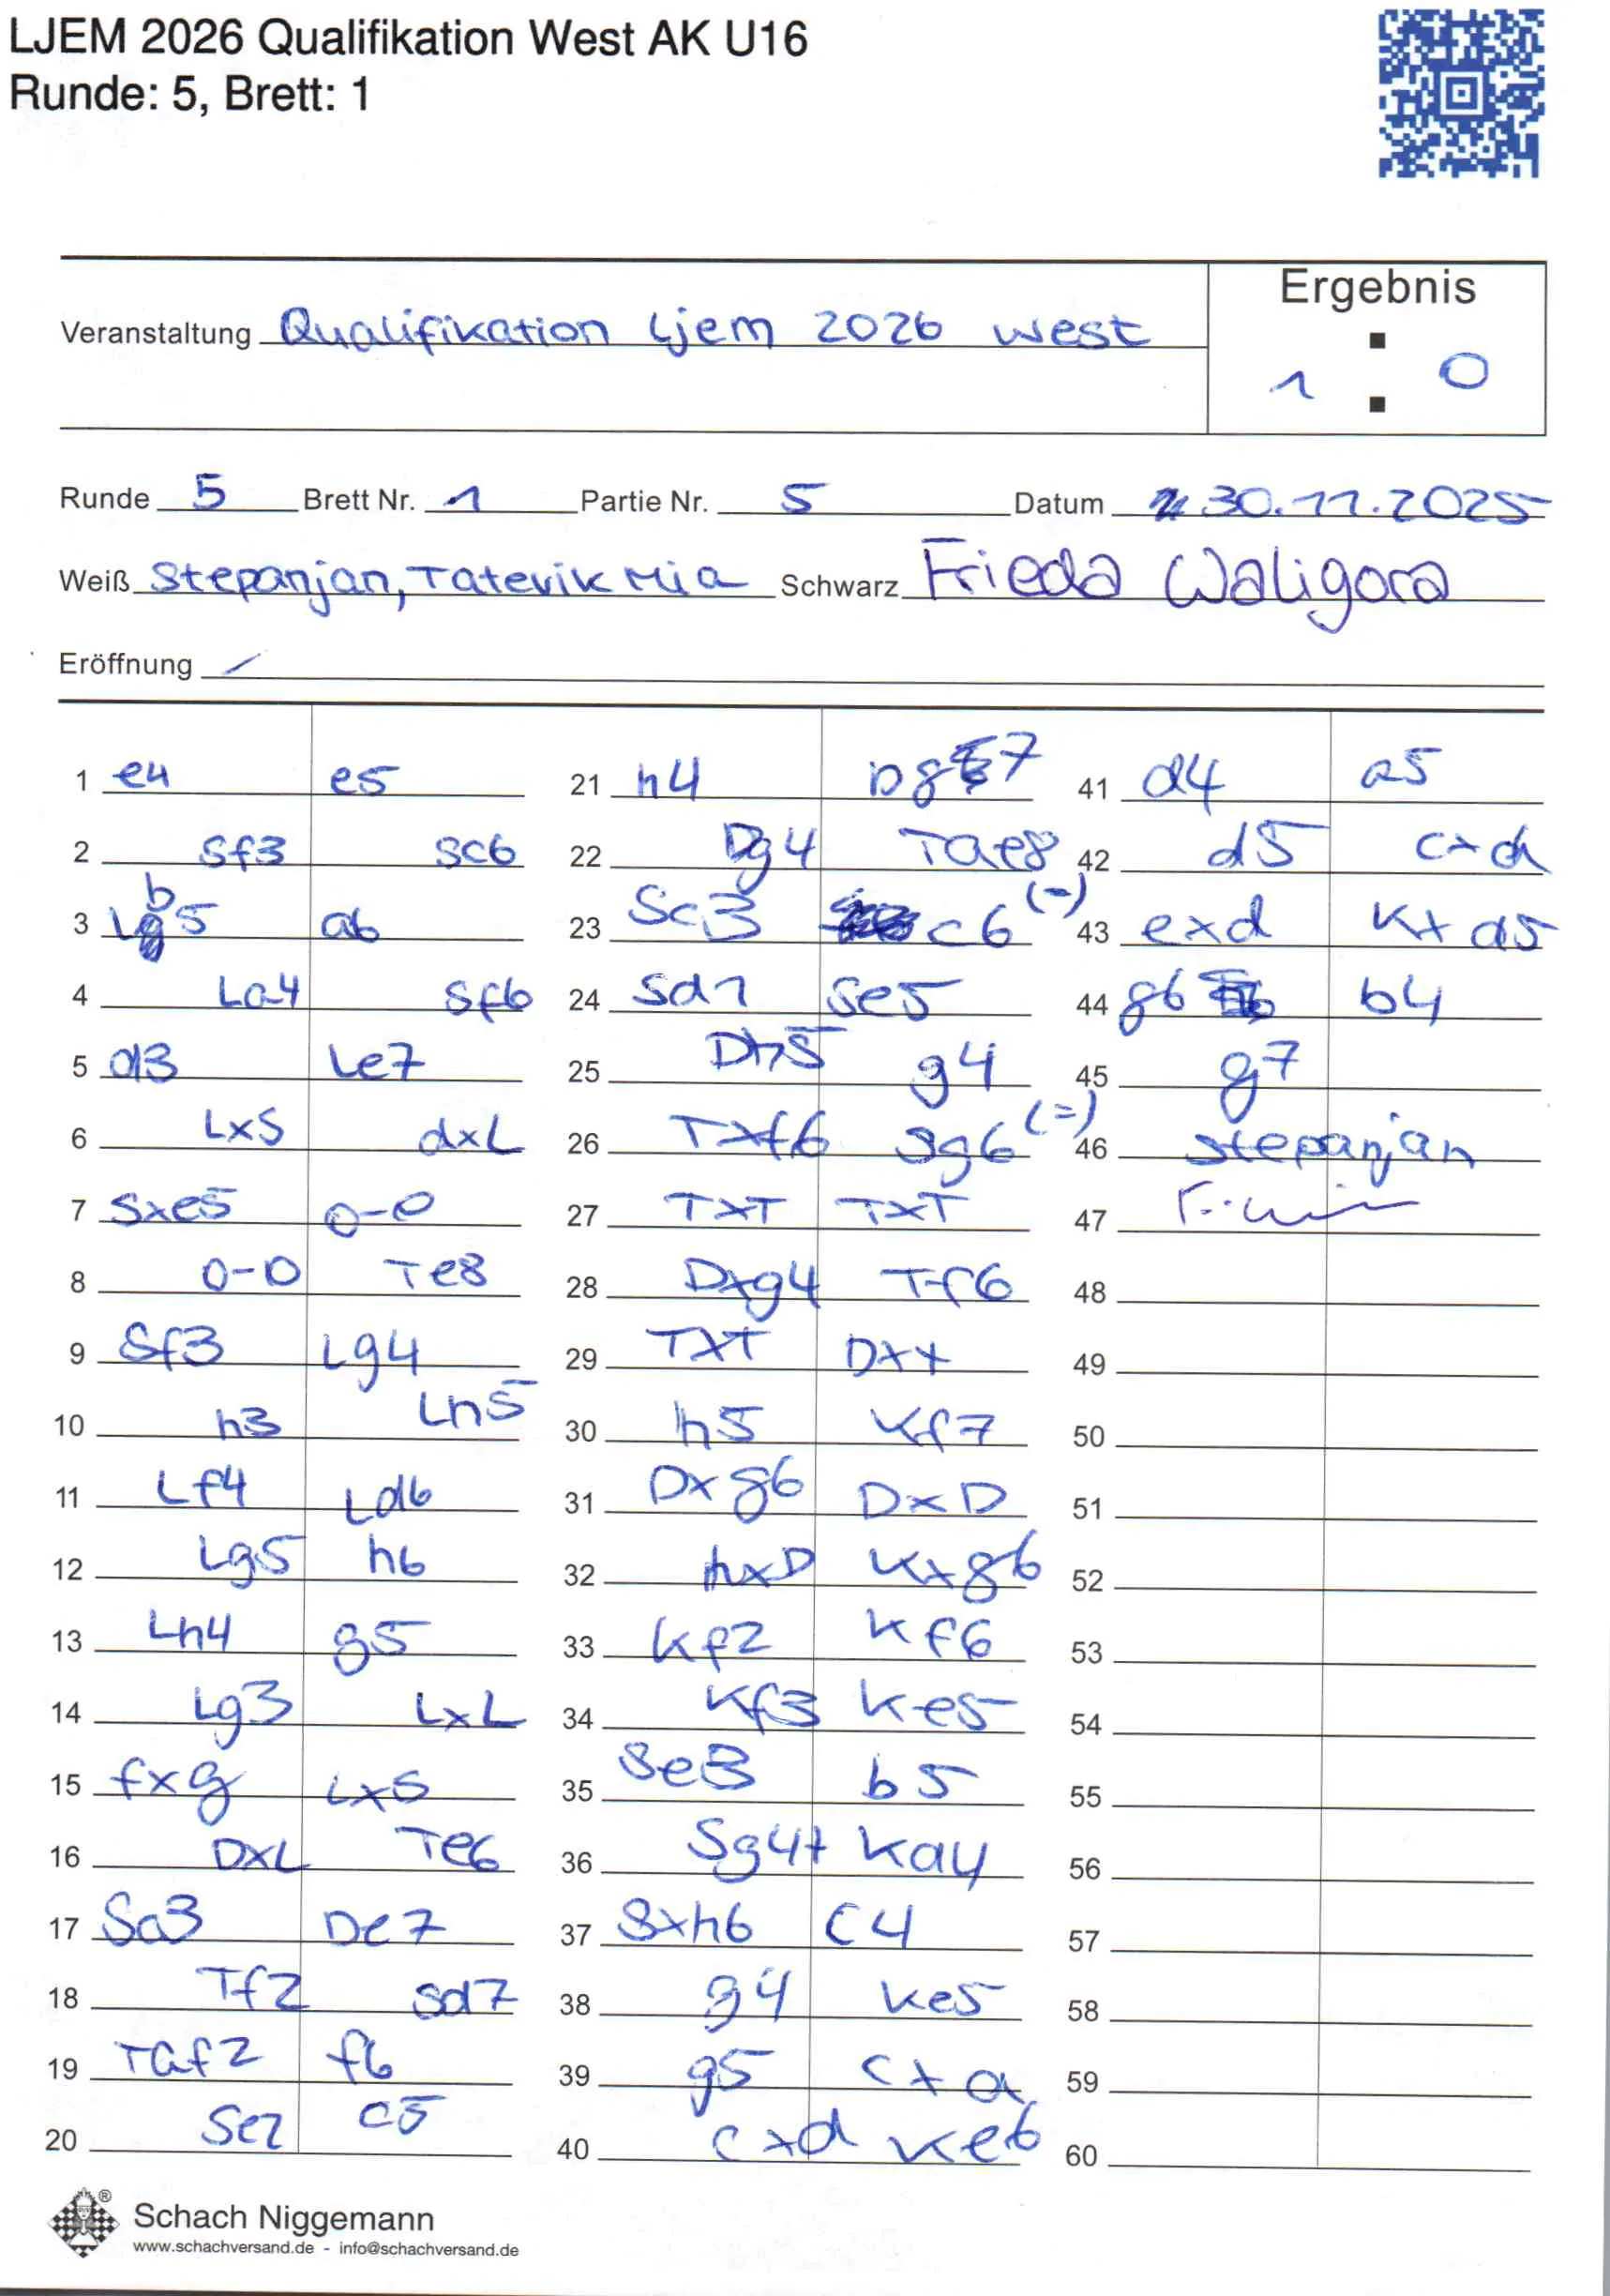 LJEM 2026 Qualifikation West AK U16
Runde: 5, Brett: 1
Ergebnis
Veranstaltung Qualifikation Ljem 2026 West
1 : 0
Runde 5 Brett Nr. 1 Partie Nr. 5 Datum 30.11.2025
Weiß Stepanjan, Tatevik Mia Schwarz Frieda Waligora
Eröffnung /
1 e4 e5
2 Sf3 Sc6
3 Lb5 a6
4 La4 Sf6
5 d3 Le7
6 LxS dxL
7 Sxe5 0-0
8 0-0 Te8
9 Sf3 Lg4
10 h3 Lh5
11 Lf4 Ld6
12 Lg5 h6
13 Lh4 g5
14 Lg3 LxL
15 fxg LxS
16 DxL Te6
17 Sa3 De7
18 Tf2 Sd7
19 Taf2 f6
20 Se2 c5
21 h4 Dg7
22 Dg4 Tae8
23 Sc3 c6 (=)
24 Sd1 Se5
25 Dh5 g4
26 Txf6 Sg6 (=)
27 TxT TxT
28 Dxg4 Tf6
29 TxT Dx+
30 h5 Kf7
31 Dxg6 DxD
32 hxD Kxg6
33 Kf2 Kf6
34 Kf3 Ke5
35 Se3 b5
36 Sg4+ Kd4
37 Sxh6 c4
38 g4 Ke5
39 g5 cxd
40 cxd Ke6
41 d4 a5
42 d5 cxd
43 exd Kxd5
44 g6 b4
45 g7
46 Stepanjan
47
48
49
50
51
52
53
54
55
56
57
58
59
60
Schach Niggemann
www.schachversand.de - info@schachversand.de